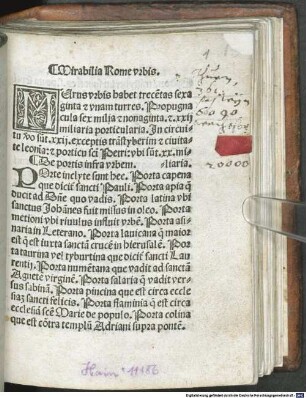 Mirabilia Rome vrbis.
MUrus vrbis habet trecētas sexa
ginta ⁊ vnam turres. Propugna
cula sex milia ⁊ nonaginta. ⁊ .xxij
miliaria porticularia. In circui
tu vo sūt .xxij. exceptis trāstyberim ⁊ ciuita
te leonia: ⁊ porticu sci Petri: vbi sūt .xx. mi
De portis infra vrbem. liaria.
POrte inclyte sunt hec. Porta capena
que dicit̄ sancti Pauli. Porta apia q̄
ducit ad Dn̄e quo vadis. Porta latina vbi
sanctus Johānes fuit missus in oleo. Porta
mectioni vbi riuulus instuit vrbē. Porta asi
naria in Leterano. Porta lauicana q̄ maior
eīt q̄ est iuxta sanctā crucē in hierusalē. Por
ta taurina vel tyburtina que dicit̄ sancti Lau
rentij. Porta numētana que vadit ad sanctā
Agnetē virginē. Porta salaria q̄ vadit ver
sus sabinā. Porta pincina que est circa eccle
siaz sancti felicis. Porta flaminia q̄ est circa
ecclesiā scē Marie de populo. Porta colina
que est cōtra templū Adriani supra pontē.
20000
Hain 11186